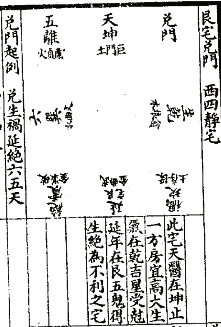 艮宅兌門　西四靜宅
兌門
天坤
土門巨
五離
火貞廉
生乾
木狼貪
六巽
禍坎
土存祿
延艮
金曲武
絕震
金軍破
此宅天醫在坤止
一方房宜高大生
氣在乾吉星受尅
延年在艮五尅得
生絕為不利之宅
兌門起例　兌生禍延絕六五天